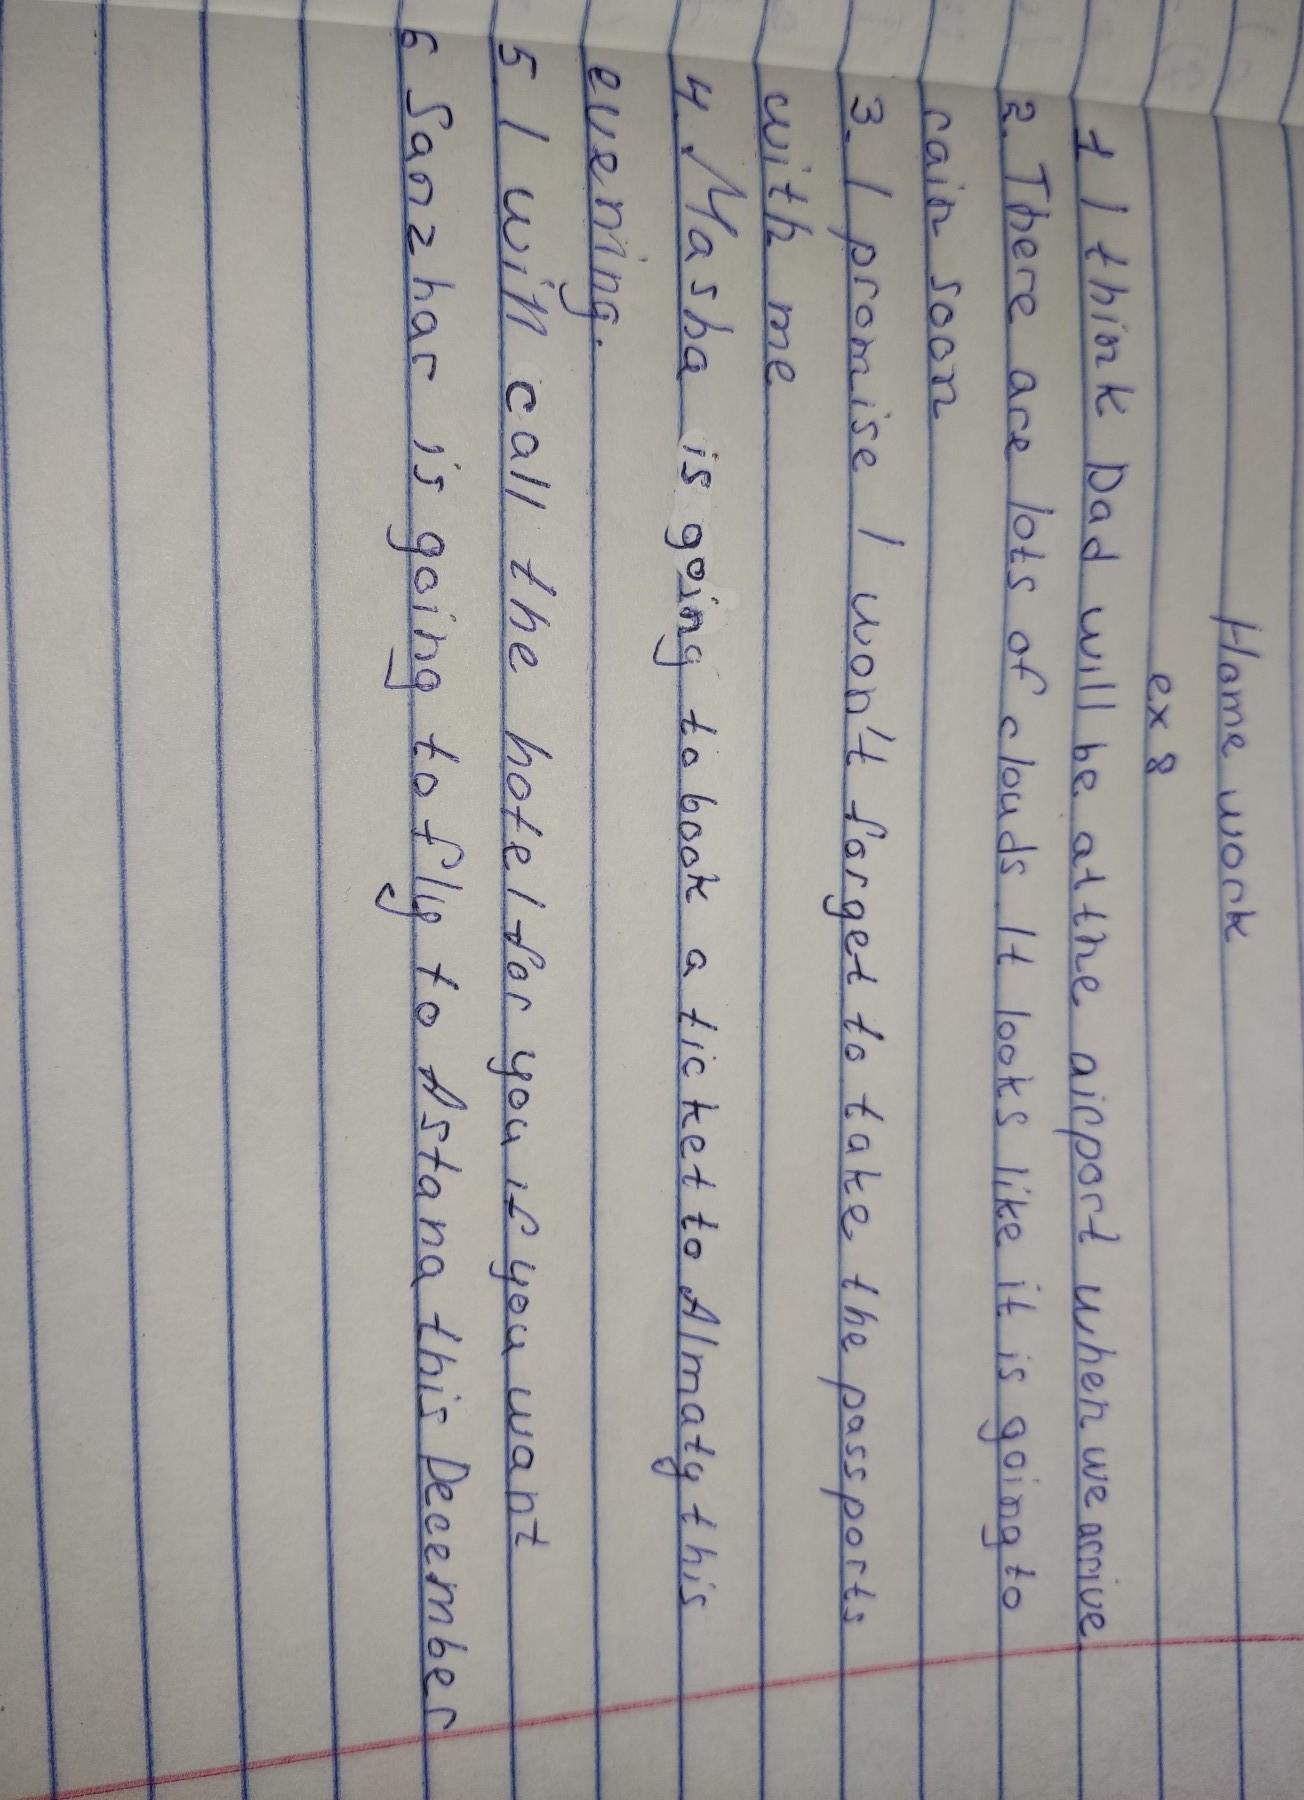 Home work
ex 8
1 I think Dad will be at the airport when we arrive
2. There are lots of clouds. It looks like it is going to
rain soon
3. I promise I won't forget to take the passports
with me
4. Masha is going to book a ticket to Almaty this
evening.
5 I will call the hotel for you if you want
6 Sanzhar is going to fly to Astana this December